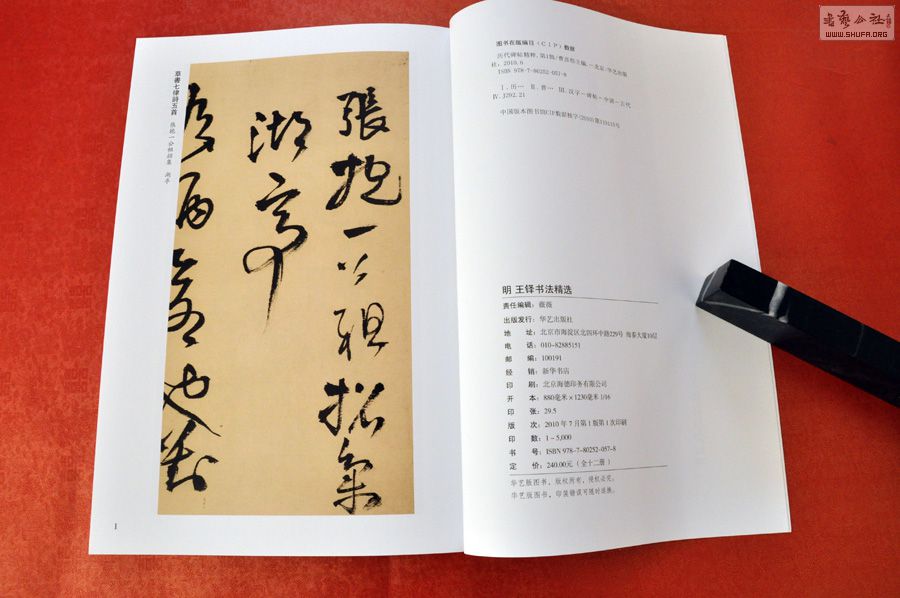 書藝公社
WWW.SHUFA.ORG
草書七律詩五首
張抱一公祖招集 湖亭
張抱一公祖招集
湖亭
1
图书在版编目（CIP）数据
历代碑帖精粹．第1辑/曹彦伟主编．—北京：华艺出版
社，2010.6
ISBN 978-7-80252-057-8
Ⅰ.历… Ⅱ.曹… Ⅲ.汉字－碑帖－中国－古代
Ⅳ.J292.21
中国版本图书馆CIP数据核字(2010)第119415号
明 王铎书法精选
责任编辑：薇薇
出版发行：华艺出版社
地　　址：北京市海淀区北四环中路229号 海泰大厦10层
电　　话：010-82885151
邮　　编：100191
经　　销：新华书店
印　　刷：北京海德印务有限公司
开　　本：880毫米×1230毫米 1/16
印　　张：29.5
版　　次：2010年7月第1版第1次印刷
印　　数：1～5,000
书　　号：ISBN 978-7-80252-057-8
定　　价：240.00元（全十二册）
华艺版图书，版权所有，侵权必究。
华艺版图书，印装错误可随时退换。